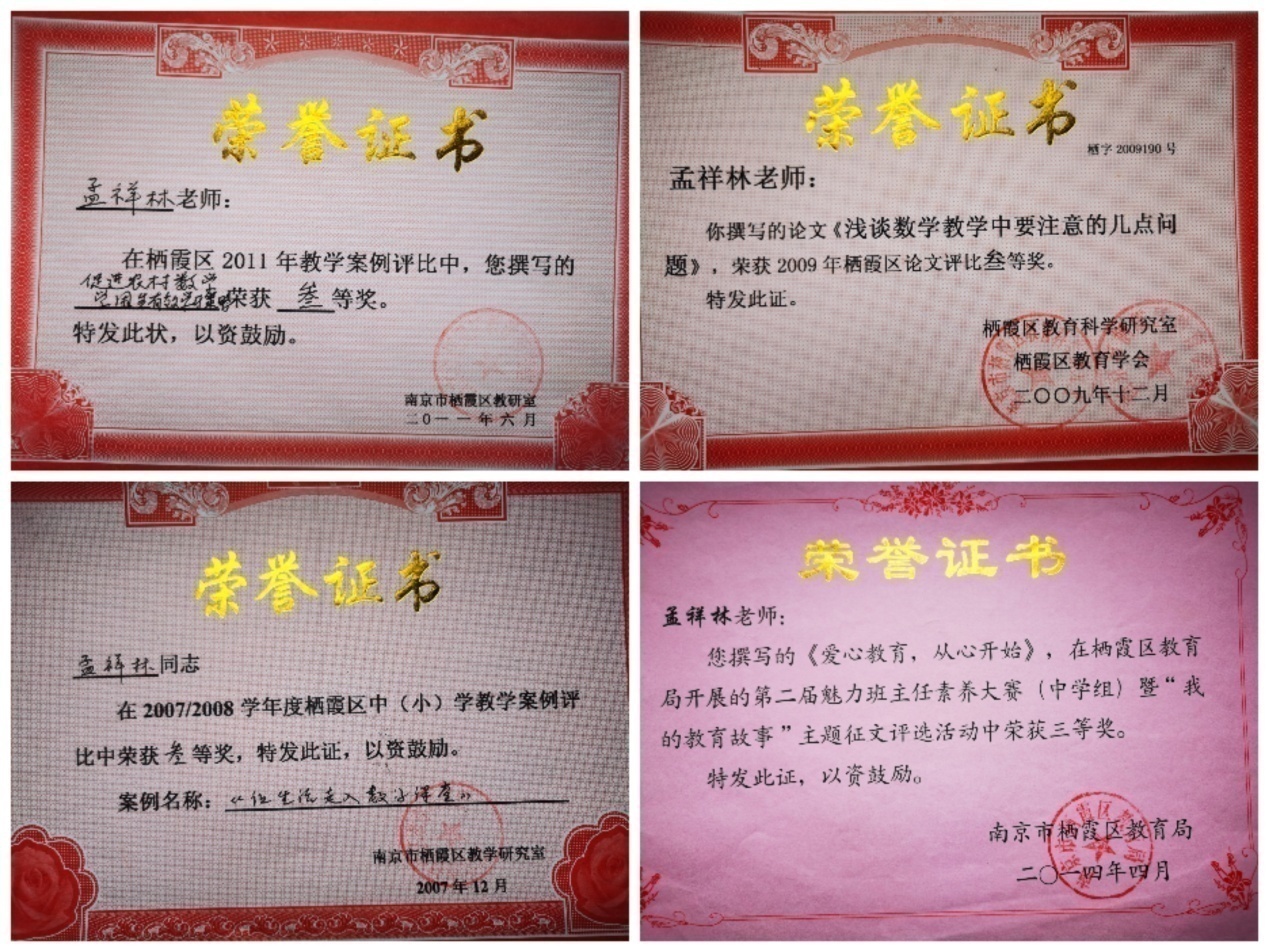 荣誉证书
孟祥林老师：
在栖霞区 2011 年教学案例评比中，您撰写的
促进农村数学
荣获 叁 等奖。
特发此状，以资鼓励。
南京市栖霞区教研室
二0一一年六月
荣誉证书
栖字 2009190 号
孟祥林老师：
你撰写的论文《浅谈数学教学中要注意的几点问
题》，荣获 2009 年栖霞区论文评比叁等奖。
特发此证。
栖霞区教育科学研究室
栖霞区教育学会
二〇〇九年十二月
荣誉证书
孟祥林同志
在 2007/2008 学年度栖霞区中（小）学教学案例评
比中荣获 叁 等奖，特发此证，以资鼓励。
案例名称：《让生活走入数学课堂》
南京市栖霞区教学研究室
2007 年 12 月
荣誉证书
孟祥林老师：
您撰写的《爱心教育，从心开始》，在栖霞区教育
局开展的第二届魅力班主任素养大赛（中学组）暨“我
的教育故事”主题征文评选活动中荣获三等奖。
特发此证，以资鼓励。
南京市栖霞区教育局
二〇一四年四月